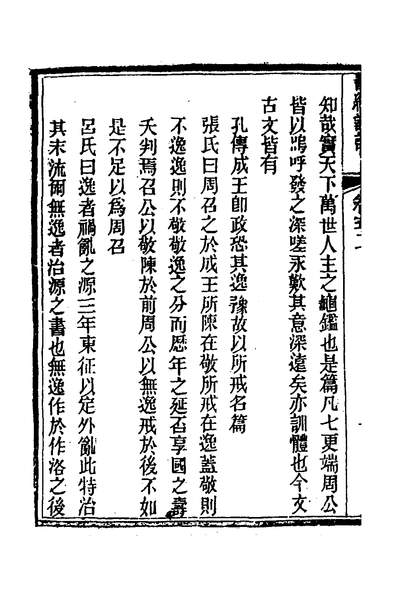 知哉實天下萬世人主之龜鑑也是篇凡七更端周公
皆以嗚呼發之深嗟永歎其意深遠矣亦訓體也今文
古文皆有
孔傳成王卽政恐其逸豫故以所戒名篇
張氏曰周召之於成王所陳在敬所戒在逸蓋敬則
不逸逸則不敬敬逸之分而歷年之延否享國之壽
夭判焉召公以敬陳於前周公以無逸戒於後不如
是不足以爲周召
呂氏曰逸者禍亂之源三年東征以定外亂此特治
其末流爾無逸者治源之書也無逸作於作洛之後